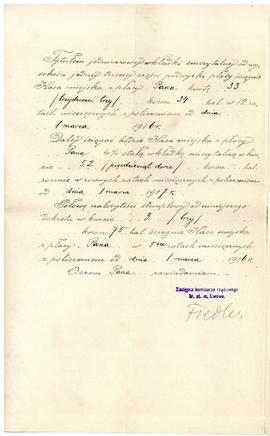 Tytułem jednorazowej wkładki emerytalnej od wy-
sokości jednej trzeciej części podwyżki płacy ściągnie
Kasa miejska z płacy Pana kwotę 33
/trzydzieści trzy/ koron 34 hal w 12 ra-
tach miesięcznych z policzeniem od dnia
1 marca 1916 r.
Dalej ściągać będzie Kasa miejska z płacy
Pana 4% stałą wkładkę emerytalną w kwo-
cie 52 /pięćdziesiąt dwa/ koron - hal.
rocznie w równych ratach miesięcznych z policzeniem
od dnia 1 marca 1917 r.
Połowę należytości stemplowej od niniejszego
dekretu w kwocie 3 /trzy/
koron 75 hal. ściągnie Kasa miejska
z płacy Pana w 5ciu ratach miesięcznych
z policzeniem od dnia 1 marca 1916 r.
O czem Pana zawiadamiam.
Zastępca komisarza rządowego
kr. st. m. Lwowa.
Fiedler